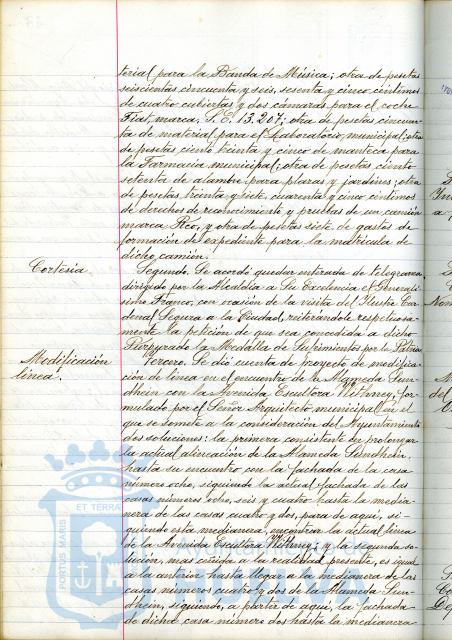 terial para la Banda de Música; otra de pesetas
seiscientas cincuenta y seis, sesenta y cinco céntimos
de cuatro cubiertas y dos cámaras para el coche
Fiat, marca, S.E. 13.207; otra de pesetas cincuen-
ta de material para el Laboratorio municipal; otra
de pesetas ciento treinta y cinco de manteca para
la Farmacia municipal; otra de pesetas ciento
setenta de alambre para plazas y jardines; otra
de pesetas treinta y siete, cuarenta y cinco céntimos
de derechos de reconocimiento y pruebas de un camión
marca Reo, y otra de pesetas siete de gastos de
formación de expediente para la matrícula de
dicho camión.
Cortesía. Segundo. Se acordó quedar enterada de telegrama
dirigido por la Alcaldía a Su Excelencia el Generalí-
simo Franco, con ocasión de la visita del Ilustre Car-
denal Segura a la Ciudad, reiterándole respetuosa-
mente la petición de que sea concedida a dicho
Purpurado la Medalla de Sufrimientos por la Patria.
Modificación Tercero. Se dió cuenta de proyecto de modifica-
línea. ción de línea en el encuentro de la Alameda Sun-
dhein con la Avenida Escultora Withney, for-
mulado por el Señor Arquitecto municipal en el
que se somete a la consideración del Ayuntamiento
dos soluciones: la primera consistente en prolongar
la actual alineación de la Alameda Sundhein,
hasta su encuentro con la fachada de la casa
número ocho, siguiendo la actual fachada de las
casas números ocho, seis y cuatro hasta la media-
nera de las casas cuatro y dos, para de aquí, si-
guiendo esta medianera, encontrar la actual línea
de la Avenida Escultora Withney; y la segunda so-
lución, mas ceñida a la realidad presente, es igual
a la anterior hasta llegar a la medianera de las
casas números cuatro y dos de la Alameda Sun-
dhein, siguiendo, a partir de aquí, la fachada
de dicha casa número dos hasta la medianera
PORTUS MARIS ET TERRAE
Ayuntamiento de